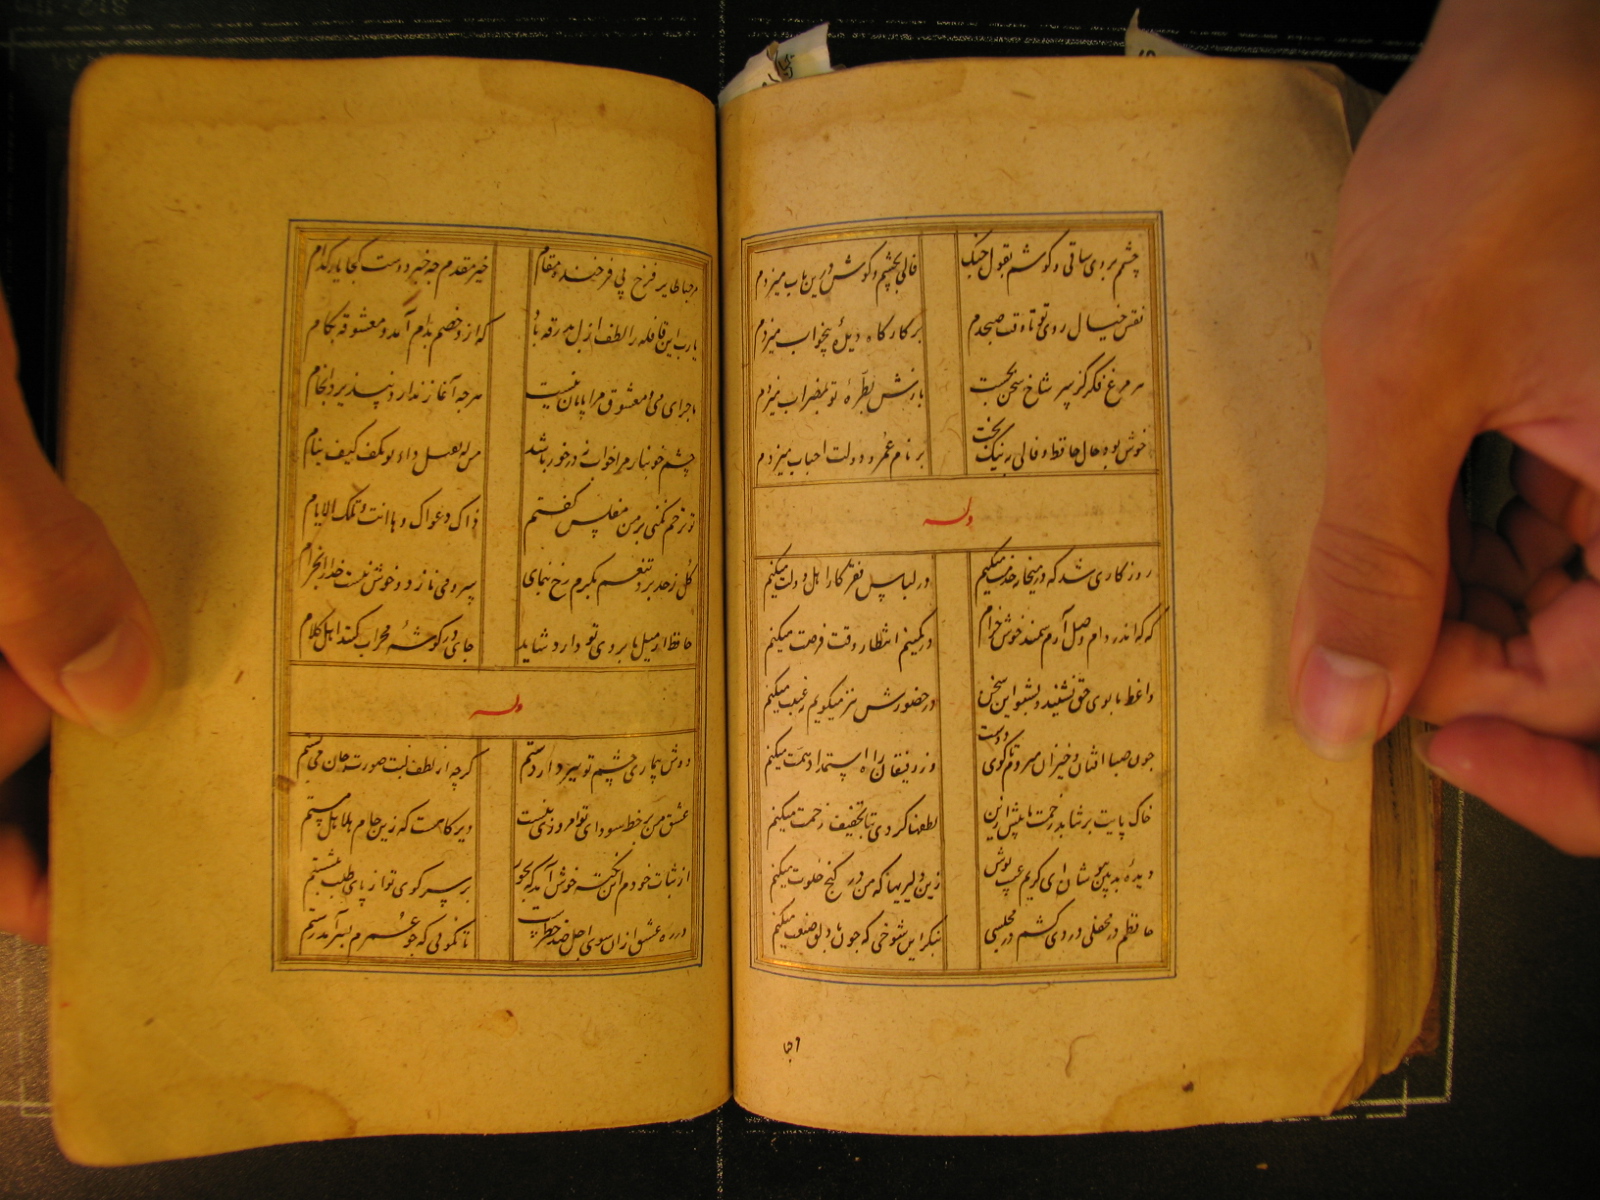 چشمم بروی ساقی و گوشم بقول چنک
فالی بچشم و گوش درین باب میزدم
نقش خیال روی تو تا وقت صبحدم
بر کارگاه دیدهٔ بیخواب میزدم
هر مرغ فکر کز سر شاخ سخن بجست
بازش بطرهٔ تو بمضراب میزدم
خوش بود حال حافظ و فالی ز نیک بخت
بر نام عمر و دولت احباب میزدم
وله
روزکاری شد که در میخانه خدمت میکنم
در لباس فقر کار اهل دولت میکنم
تا که اندر دام وصل آرم سمند خوش خرام
در کمینم انتظار وقت فرصت میکنم
واعظ ما بوی حق نشنید بشنو این سخن
در حضورش نیز میکویم نه غیبت میکنم
چون صبا افتان و خیزان میروم تا کوی دوست
وز رفیقان راه استمداد همت میکنم
خاک پایت بر نتابد زحمت ما بیش ازین
لطفها کردی بتا تخفیف زحمت میکنم
دیدهٔ بدبین بپوشان ای کریم عیب پوش
زین دلیریها که من در کنج خلوت میکنم
حافظم در محفلی دردی کشم در مجلسی
بنکر این شوخی که چون با خلق صنعت میکنم
مرحبا طایر فرخ پی فرخنده مقام
خیر مقدم چه خبر دوست کجا یار کدام
یارب این قافله را لطف ازل بدرقه باد
که ازو خصم بدام آمد و معشوقه بکام
ماجرای من و معشوق مرا پایان نیست
هر چه آغاز ندارد نپذیرد انجام
چشم خونبار مرا خواب نه درخور باشد
من له یقتل داء دنف کیف ینام
تو ترحم نکنی بر من مفلس کفتم
ذاک دعوای و ها انت و تلک الایام
کل ز حد برد تنعم بکرم رخ بنمای
سرو می نازد و خوش نیست خدا را بخرام
حافظ ار میل بابروی تو دارد شاید
جای در کوشهٔ محراب کنند اهل کلام
وله
دوش بیماری چشم تو ببرد از دستم
کرچه از لطف لبت صورت جان می بستم
عشق من بر خط سودای تو امروزی نیست
دیرکاهست که زین جام هلالی مستم
از ثبات خودم این نکته خوش آمد که بجور
بر سر کوی تو از پای طلب ننشستم
در ره عشق از آن سوی اجل صد خطرست
تا نکویی که چو عمرم بسر آمد رستم